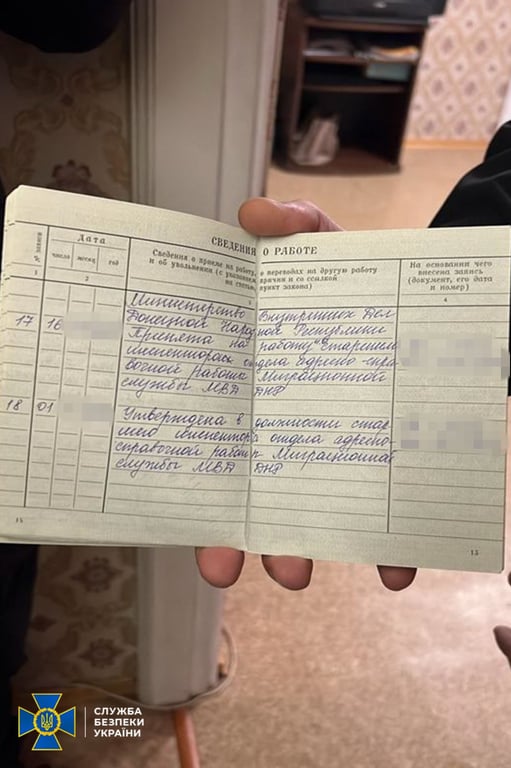 СВЕДЕНИЯ О РАБОТЕ
№ записи
Дата
число
месяц
год
Сведения о приеме на работу, о переводах на другую работу
и об увольнении (с указанием причин и со ссылкой
на статью, пункт закона)
На основании чего
внесена запись
(документ, его дата
и номер)
1
2
3
4
Министерство Внутренних Дел
17 16 Донецкой Народной Республики
Принята на работу "старшим
инспектором отдела адресно-спра
вочной работы Миграционной
службы МВД ДНР
18 01 Утверждена в должности стар
шего инспектора отдела адресно-
справочной работы Миграционной
службы МВД ДНР
15
СЛУЖБА
БЕЗПЕКИ
УКРАЇНИ